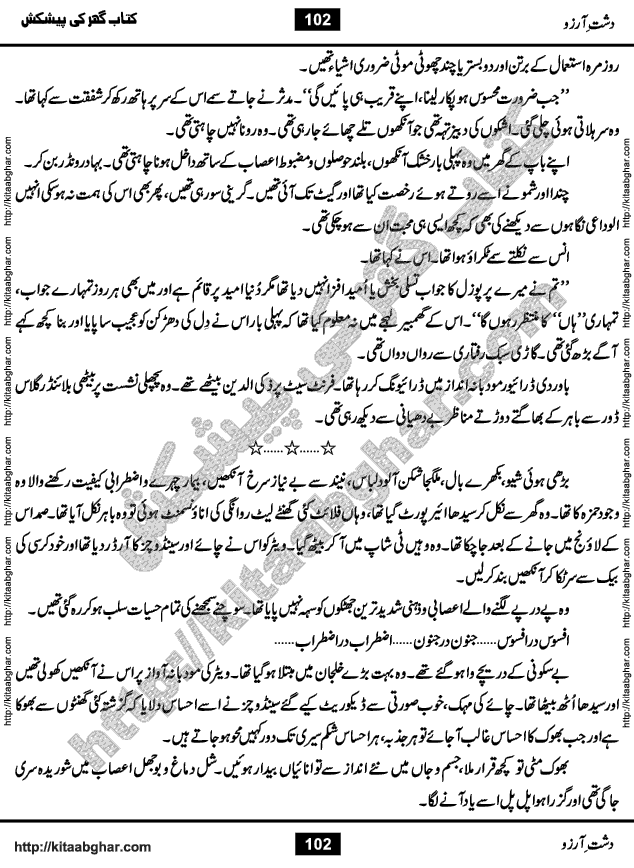 کتاب گھر کی پیشکش 102 دشتِ آرزو
روزمرہ استعمال کے برتن اور دو بستر یا چند چھوٹی موٹی ضروری اشیاء تھیں۔
’’جب ضرورت محسوس ہو پکار لینا، اپنے قریب ہی پائیں گی‘‘۔ مدثر نے جاتے سے اس کے سر پر ہاتھ رکھ کر شفقت سے کہا تھا۔
وہ سر ہلاتی ہوئی چلی گئی۔ اشکوں کی دبیز تہہ تھی جو آنکھوں تلے چھائے جا رہی تھی۔ وہ رونا نہیں چاہتی تھی۔
اپنے باپ کے گھر میں وہ پہلی بار خشک آنکھوں، بلند حوصلوں و مضبوط اعصاب کے ساتھ داخل ہونا چاہتی تھی۔ بہادر و نڈر بن کر۔
چندا اور شمو نے اسے روتے ہوئے رخصت کیا تھا اور گیٹ تک آئی تھیں۔ گرینی سو رہی تھیں، پھر بھی اس کی ہمت نہ ہو سکی انہیں
الوداعی نگاہوں سے دیکھنے کی بھی کہ کچھ ایسی ہی محبت ان سے ہو چکی تھی۔
انس سے نکلتے سے ٹکراؤ ہوا تھا۔ اس نے کہا تھا۔
’’تم نے میرے پرپوزل کا جواب تسلی بخش یا اُمید افزا نہیں دیا تھا مگر دُنیا امید پر قائم ہے اور میں بھی ہر روز تمہارے جواب،
تمہاری ’’ہاں‘‘ کا منتظر رہوں گا‘‘۔ اس کے گھمبیر لہجے میں نہ معلوم کیا تھا کہ پہلی بار اس نے دِل کی دھڑکن کو عجیب سا پایا اور بنا کچھ کہے
آگے بڑھ گئی تھی۔ گاڑی سبک رفتاری سے رواں دواں تھی۔
باوردی ڈرائیور مودبانہ انداز میں ڈرائیونگ کر رہا تھا۔ فرنٹ سیٹ پر ذکی الدین بیٹھے تھے۔ وہ پچھلی نشست پر بیٹھی بلائنڈر گلاس
ڈور سے باہر کے بھاگتے دوڑتے مناظر بے دھیانی سے دیکھ رہی تھی۔
☆......☆......☆
بڑھی ہوئی شیو، بکھرے بال، ملگجا شکن آلود لباس، نیند سے بے نیاز سرخ آنکھیں، بیمار چہرے و اضطرابی کیفیت رکھنے والا وہ
وجود حمزہ کا تھا۔ وہ گھر سے نکل کر سیدھا ائیر پورٹ گیا تھا، وہاں فلائٹ کئی گھنٹے لیٹ روانگی کی اناؤنسمنٹ ہوئی تو وہ باہر نکل آیا تھا۔ صمد اس
کے لاؤنج میں جانے کے بعد جا چکا تھا۔ وہ وہیں ٹی شاپ میں آ کر بیٹھ گیا۔ ویٹر کو اس نے چائے اور سینڈوچز کا آرڈر دیا تھا اور خود کرسی کی
بیک سے سر ٹکا کر آنکھیں بند کر لیں۔
وہ پے در پے لگنے والے اعصابی و ذہنی شدید ترین جھٹکوں کو سہہ نہیں پایا تھا۔ سوچنے سمجھنے کی تمام حسیات سلب ہو کر رہ گئی تھیں۔
افسوس در افسوس......جنون در جنون......اضطراب در اضطراب......
بے سکونی کے دریچے وا ہو گئے تھے۔ وہ بہت بڑے خلجان میں مبتلا ہو گیا تھا۔ ویٹر کی مودبانہ آواز پر اس نے آنکھیں کھولی تھیں
اور سیدھا اُٹھ بیٹھا تھا۔ چائے کی مہک، خوب صورتی سے ڈیکوریٹ کیے گئے سینڈوچز نے اسے احساس دلایا کہ گزشتہ کئی گھنٹوں سے بھوکا
ہے اور جب بھوک کا احساس غالب آ جائے تو ہر جذبہ، ہر احساس شکم سیری تک دور کہیں محو ہو جاتے ہیں۔
بھوک مٹی تو کچھ قرار ملا، جسم و جاں میں نئے انداز سے توانائیاں بیدار ہوئیں۔ شل دماغ و بوجھل اعصاب میں شوریدہ سری
جاگی تھی اور گزرا ہوا پل پل اسے یاد آنے لگا۔
http://kitaabghar.com 102 دشتِ آرزو
http://kitaabghar.com http://kitaabghar.com http://kitaabghar.com http://kitaabghar.com http://kitaabghar.com http://kitaabghar.com
http://kitaabghar.com http://kitaabghar.com http://kitaabghar.com http://kitaabghar.com http://kitaabghar.com http://kitaabghar.com
کتاب گھر کی پیشکش
http://kitaabghar.com